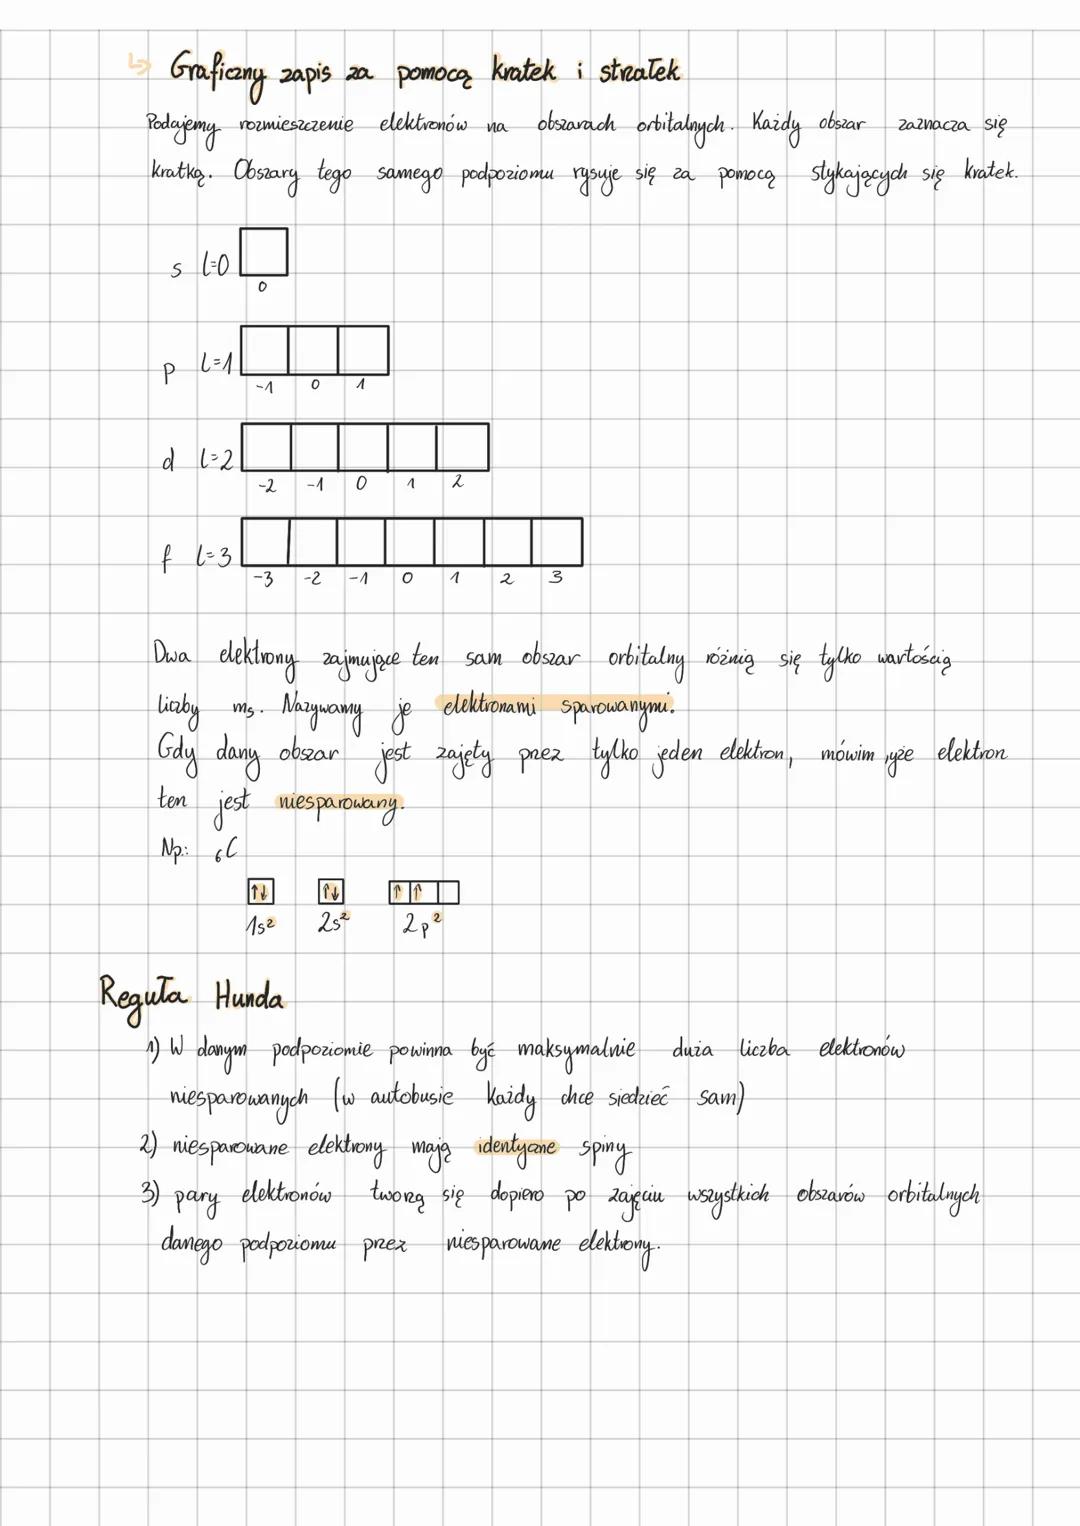 ↳ Graficzny zapis za pomocą kratek i strzałek
Podajemy rozmieszczenie elektronów na obszarach orbitalnych. Każdy obszar zaznacza się
kratką. Obszary tego samego podpoziomu rysuje się za pomocą stykających się kratek.
s l=0
0
p l=1
-1 0 1
d l=2
-2 -1 0 1 2
f l=3
-3 -2 -1 0 1 2 3
Dwa elektrony zajmujące ten sam obszar orbitalny różnią się tylko wartością
liczby ms. Nazywamy je elektronami sparowanymi.
Gdy dany obszar jest zajęty przez tylko jeden elektron, mówim ,yże elektron
ten jest niesparowany.
Np.: ₆C
↑↓ ↑↓ ↑ ↑
1s² 2s² 2p²
Reguła Hunda
1) W danym podpoziomie powinna być maksymalnie duża liczba elektronów
niesparowanych (w autobusie każdy chce siedzieć sam)
2) niesparowane elektrony mają identyczne spiny
3) pary elektronów tworzą się dopiero po zajęciu wszystkich obszarów orbitalnych
danego podpoziomu przez niesparowane elektrony.